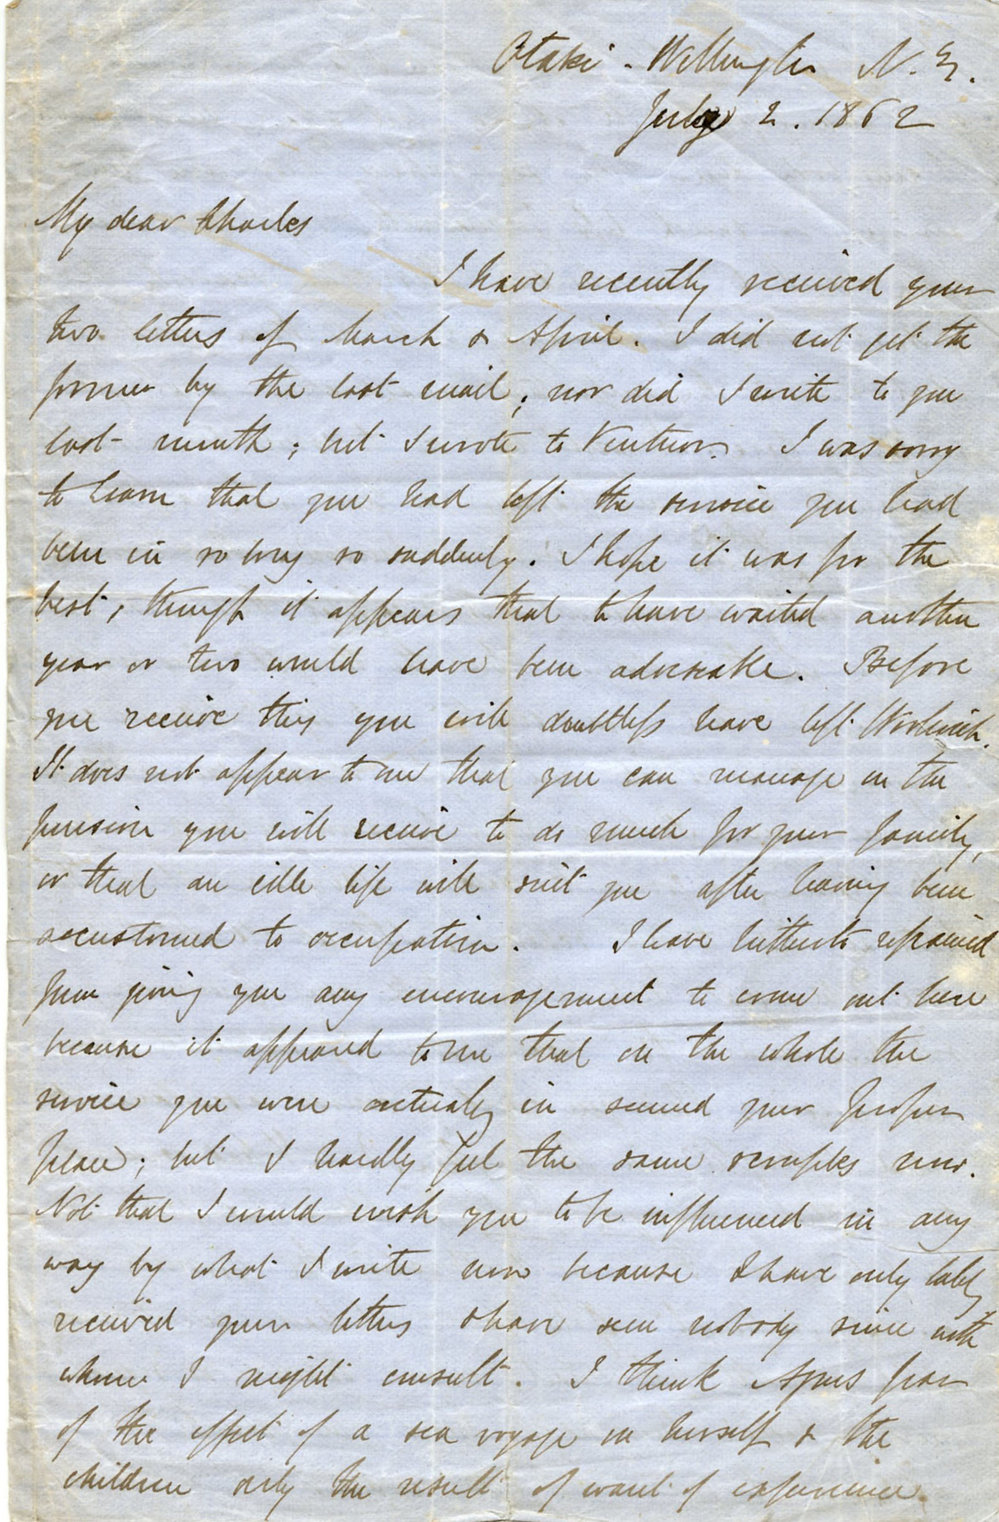 Otaki - Wellington N.Z.
July 2. 1862
My dear Charles
I have recently received your
two letters of March & April. I did not get the
former by the last mail; nor did I write to you
last month; but I wrote to Ventnor. I was sorry
to learn that you had left the service you had
been in so long so suddenly. I hope it was for the
best, though it appears that to have waited another
year or two would have been advisable. Before
you receive this you will doubtless have left Woolwich.
It does not appear to me that you can manage on the
pension you will receive to do much for your family,
or that an idle life will suit you after having been
accustomed to occupation. I have hitherto refrained
from giving you any encouragement to come out here
because it appeared to me that on the whole the
service you were actually in seemed your proper
place; but I hardly feel the same scruples now.
Not that I would wish you to be influenced in any
way by what I write now because I have only lately
received your letters & have seen nobody since with
whom I might consult. I think Agnes' fear
of the effect of a sea voyage on herself & the
children only the result of want of experience.